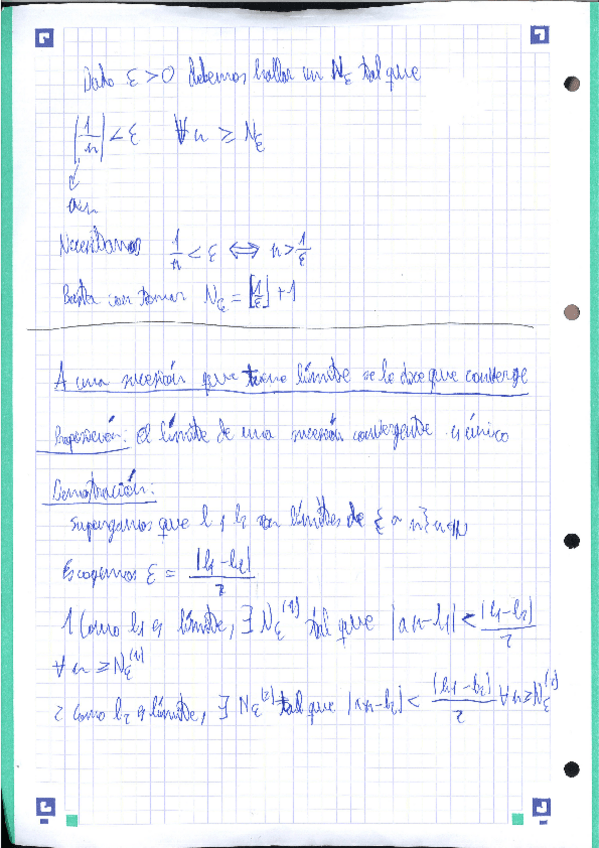 Dado ε > 0 debemos hallar un Nε tal que
|1/n| < ε ∀n ≥ Nε
an
Necesitamos 1/n < ε ⟺ n > 1/ε
Basta con tomar Nε = [1/ε] + 1
A una sucesión que tiene límite se le dice que converge
Proposición: El límite de una sucesión convergente es único
Demostración:
Supongamos que l1 y l2 son límites de {an}n∈N
Escogemos ε = |l1-l2|/2
1 Como l1 es límite, ∃ Nε(1) tal que |an-l1| < |l1-l2|/2
∀n ≥ Nε(1)
2 Como l2 es límite, ∃ Nε(2) tal que |an-l2| < |l1-l2|/2 ∀n≥Nε(2)